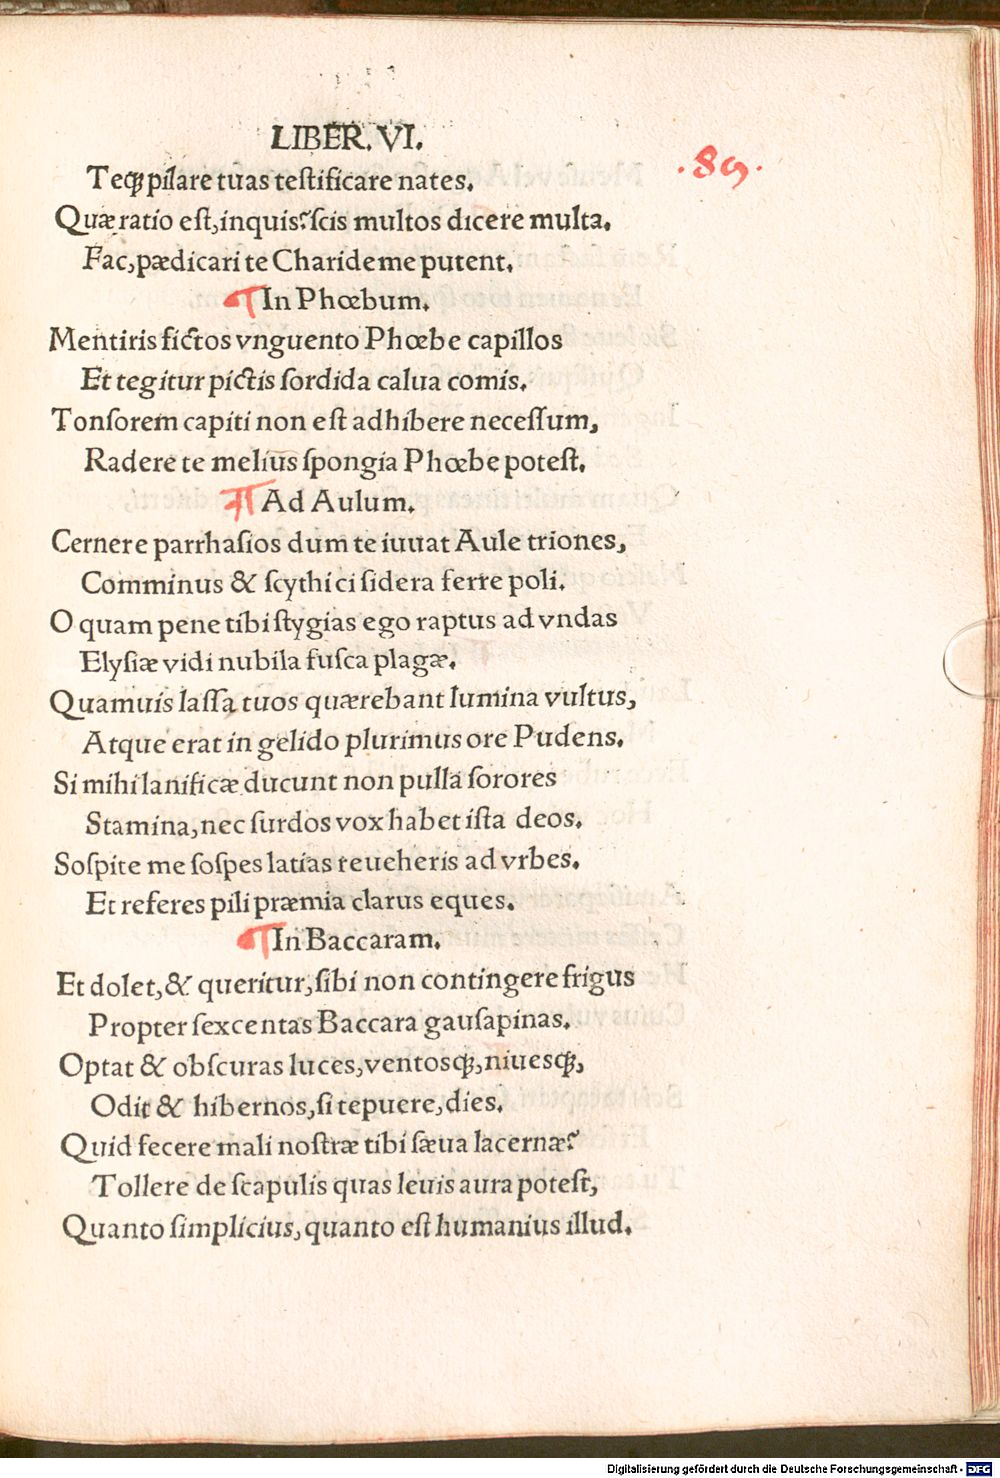 LIBER. VI.
.89.
Teq̃ pilare tuas teſtificare nates.
Quæ ratio eſt, inquis? ſcis multos dicere multa.
Fac, pædicari te Charideme putent.
¶ In Phœbum.
Mentiris fictos vnguento Phœbe capillos
Et tegitur pictis ſordida calua comis.
Tonſorem capiti non eſt adhibere neceſſum,
Radere te melius ſpongia Phœbe poteſt.
¶ Ad Aulum.
Cernere parrhaſios dum te iuuat Aule triones,
Comminus & ſcythici ſidera ferre poli.
O quam pene tibi ſtygias ego raptus ad vndas
Elyſiæ vidi nubila fuſca plagæ.
Quamuis laſſa tuos quærebant lumina vultus,
Atque erat in gelido plurimus ore Pudens.
Si mihi lanificæ ducunt non pulla ſorores
Stamina, nec ſurdos vox habet iſta deos.
Soſpite me ſoſpes latias reueheris ad vrbes.
Et referes pili præmia clarus eques.
¶ In Baccaram.
Et dolet, & queritur, ſibi non contingere frigus
Propter ſexcentas Baccara gauſapinas.
Optat & obſcuras luces, ventosq̃, niuesq̃,
Odit & hibernos, ſi tepuere, dies.
Quid fecere mali noſtræ tibi ſæua lacernæ?
Tollere de ſcapulis quas leuis aura poteſt,
Quanto ſimplicius, quanto eſt humanius illud.
Digitalisierung gefördert durch die Deutsche Forschungsgemeinschaft - DFG